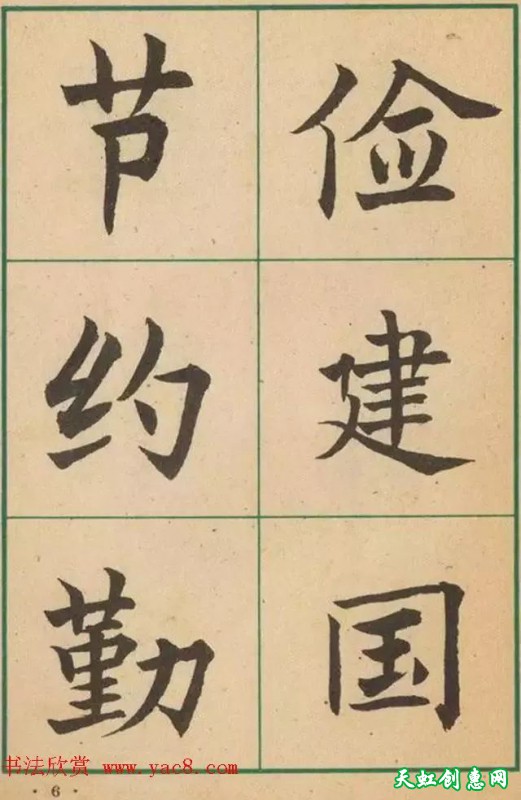 节约勤
俭建国
书法欣赏 www.yac8.com
·6·
天虹创惠网